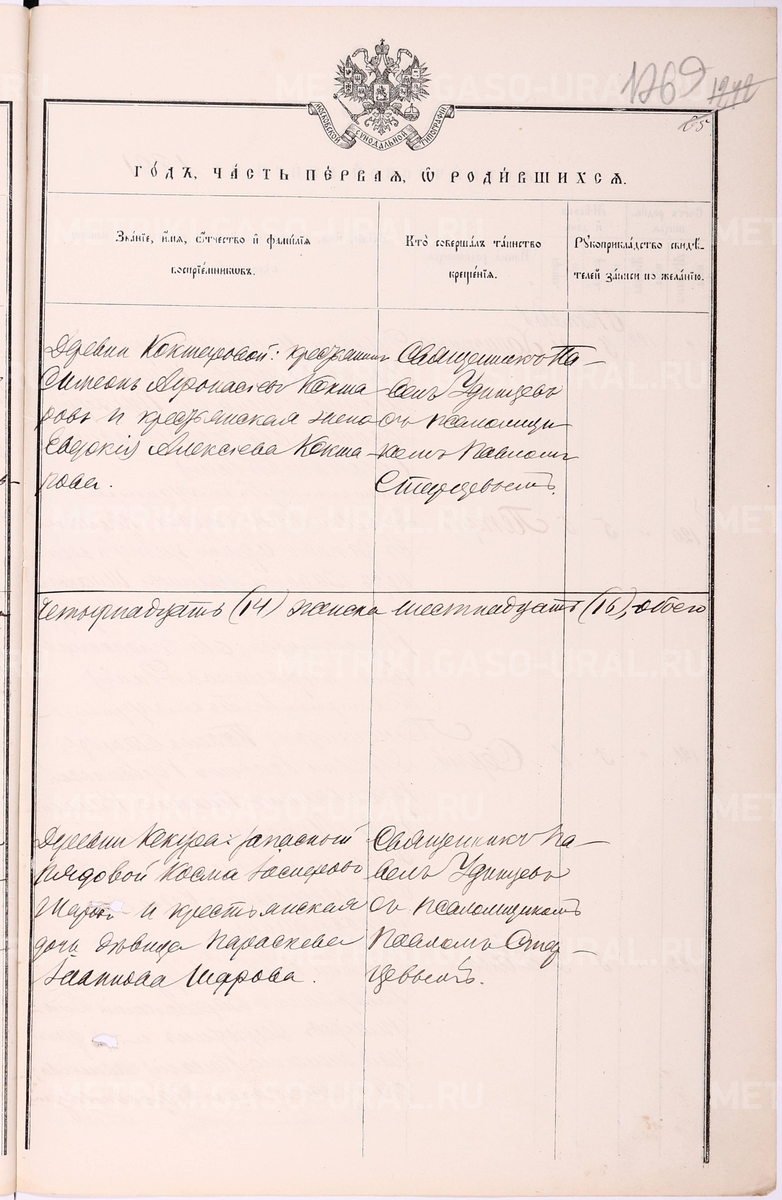 1269 1212
65
МОСКОВСКОЙ СѴНОДАЛЬНОЙ ТИПОГРАФІИ
ГО́ДЪ, ЧА́СТЬ ПЕ́РВАЯ, Ѽ РОДИ́ВШИХСЯ.
Зва́нїе, и҆́мѧ, ѻ҆́тчество и҆ фами́лїѧ воспрїе́мникѡвъ.
Кто̀ соверша́лъ та́инство креще́нїѧ.
Рꙋкоприкла́дство свидѣ́телей за́писи по жела́нїю.
Деревни Кокшаровой: крестьянинъ
Симеонъ Аѳонасіевъ Кокша
ровъ и крестьянская жена
Евдокія Алексіева Кокша
рова.
Священникъ Па–
велъ Удинцевъ
съ псаломщи
комъ Павломъ
Старцевымъ.
Четырнадцать (14) женска шестнадцать (16), обоего
Деревни Кекура: запасный
рядовой Косма
Шаровъ и крестьянская
дочь дѣвица Параскева
Іоаннова Шарова.
Священникъ Па–
велъ Удинцевъ
съ псаломщикомъ
Павломъ Стар–
цевымъ.
METRIKI.GASO-URAL.RU